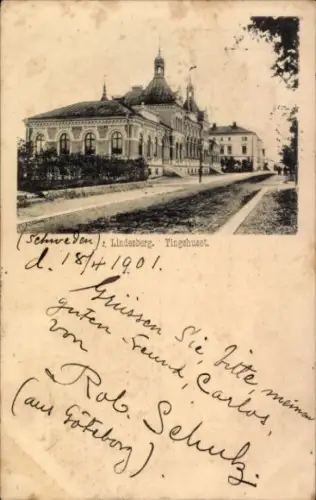 (Schweden) : Lindesberg. Tingshuset.
d. 18/4 1901.
Grüssen Sie, bitte, meinen
guten Freund, Carlos,
von
Rob. Schulz.
(aus Göteborg)